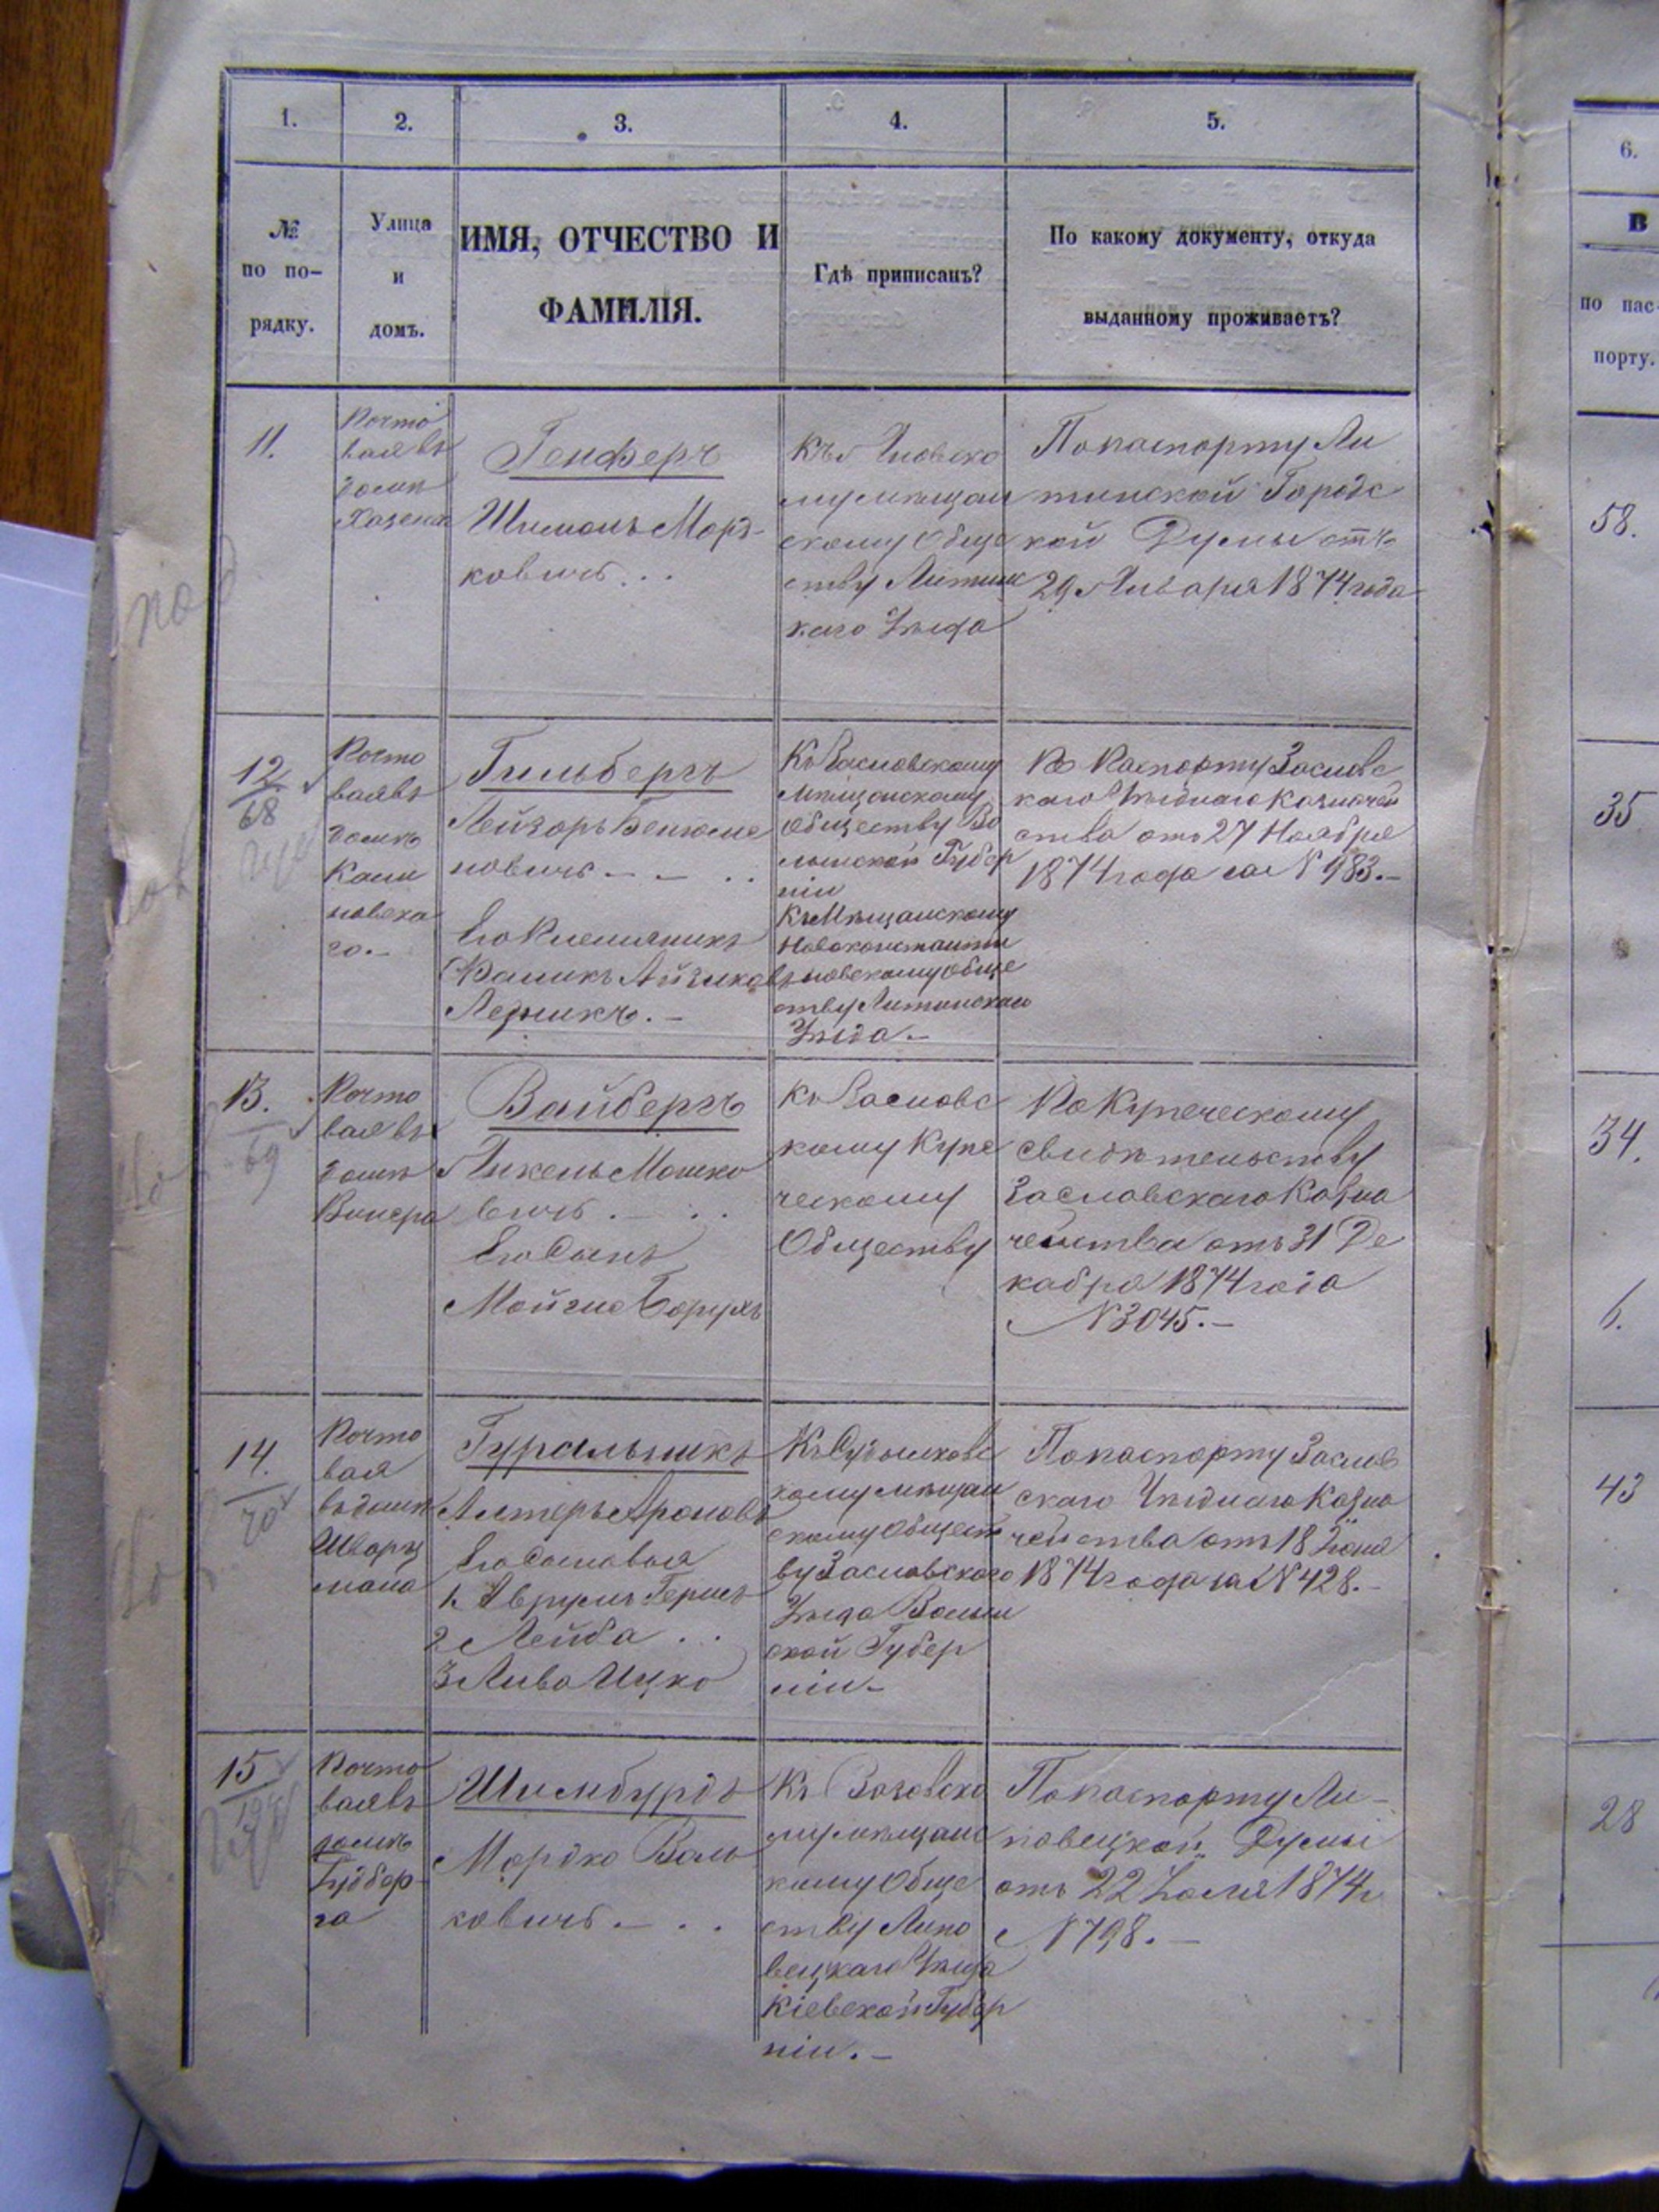 1. 2. 3. 4. 5. 6.
№ по по-
рядку.
Улица
и
домъ.
ИМЯ, ОТЧЕСТВО И
ФАМИЛІЯ.
Гдѣ приписанъ?
По какому документу, откуда
выданному проживаетъ?
В
по пас-
порту.
11.
Почто
вая въ
домѣ
Хазена
Генферъ
Шимонъ Морд-
ковичъ . . .
му мѣщан
скому Обще
ству Литинс
каго Уѣзда
По паспорту Ли
тинской Городс
кой Думы отъ
29 Января 1874 года
58.
12.
68
Почто
вая въ
домѣ
Гильбергъ
Лейзоръ Бенюме
новичъ - - . .
Его Племянникъ
К Заславскому
Мѣщанскому
Обществу Во
лынской Губер
ніи
Къ Мѣщанскому
Новоконстанти
новскому Обще
ству Литинскаго
Уѣзда. -
По Паспорту Заславс
каго Уѣзднаго Казначей
ства отъ 27 Ноября
1874 года за N 983. -
35
13.
69
Почто
вая въ
домѣ
Винера
Вайбергъ
Янкель Мошко
вичъ . - . .
Его Сынъ
Къ Заславс
кому Купе
ческому
Обществу
По Купеческому
свидѣтельству
Заславскаго Казна
чейства отъ 31 Де
кабря 1874 года
N 3045. -
34.
6.
14.
70
Почто
вая
въ домѣ
Шварц
мана
Гуральникъ
Алтеръ Ароновъ
Его Сыновья
1. Аврумъ Гершъ
2 Лейба . .
3 Лива Ицко
кому мѣщан
скому Общест
ву Заславского
Уѣзда Волын
ской Губер
ніи -
По паспорту Заслав
скаго Уѣзднаго Казна
чейства отъ 18 Іюня
1874 года за N 428. -
43
15
Почто
вая въ
домѣ
Шимбурдъ
Мордко Валь
ковичъ . - . .
му мѣщанс
кому Обще
ству Липо
вецкаго Уѣзда
Кіевской Губер
ніи. -
По паспорту Ли-
повецкой Думы
отъ 22 Іюля 1874 г
N 798. -
28